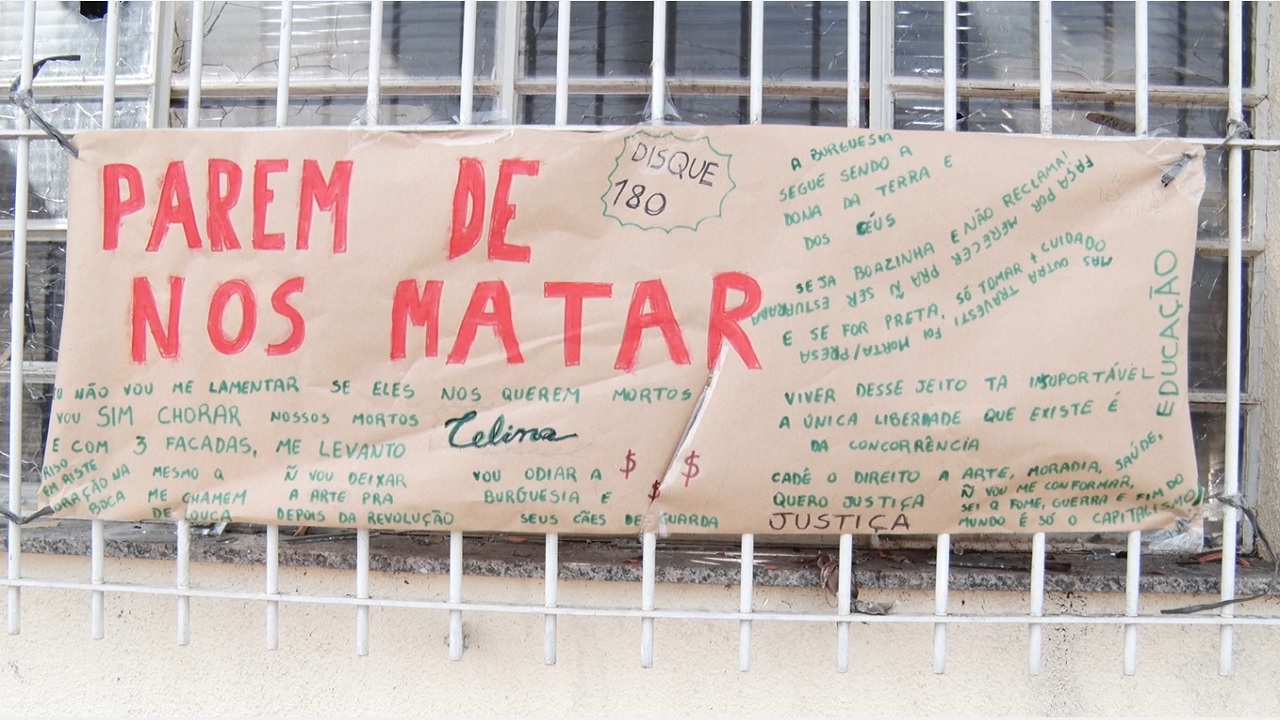 PAREM DE
NOS MATAR
DISQUE
180
NÃO VOU ME LAMENTAR SE ELES NOS QUEREM MORTOS
VOU SIM CHORAR NOSSOS MORTOS
E COM 3 FACADAS, ME LEVANTO
Celina
RISO
EM RISTE
ORAÇÃO NA
BOCA
MESMO Q
ME CHAMEM
DE LOUCA
Ñ VOU DEIXAR
A ARTE PRA
DEPOIS DA REVOLUÇÃO
VOU ODIAR A $ $
BURGUESIA E $
SEUS CÃES DE GUARDA
A BURGUESIA
SEGUE SENDO A
DONA DA TERRA E
DOS CÉUS
SEJA BOAZINHA E NÃO RECLAMA!
FAÇA POR MERECER PRA Ñ SER ESTUPRADA
E SE FOR PRETA, TRAVESTI
ÓS TOMAR + CUIDADO
MAS OUTRA FOI MORTA/PRESA
VIVER DESSE JEITO TA INSUPORTÁVEL
A ÚNICA LIBERDADE QUE EXISTE É
DA CONCORRÊNCIA
CADÊ O DIREITO A ARTE, MORADIA, SAÚDE,
EDUCAÇÃO
QUERO JUSTIÇA
JUSTIÇA
Ñ VOU ME CONFORMAR,
SEI Q FOME, GUERRA E FIM DO
MUNDO É SÓ O CAPITALISMO